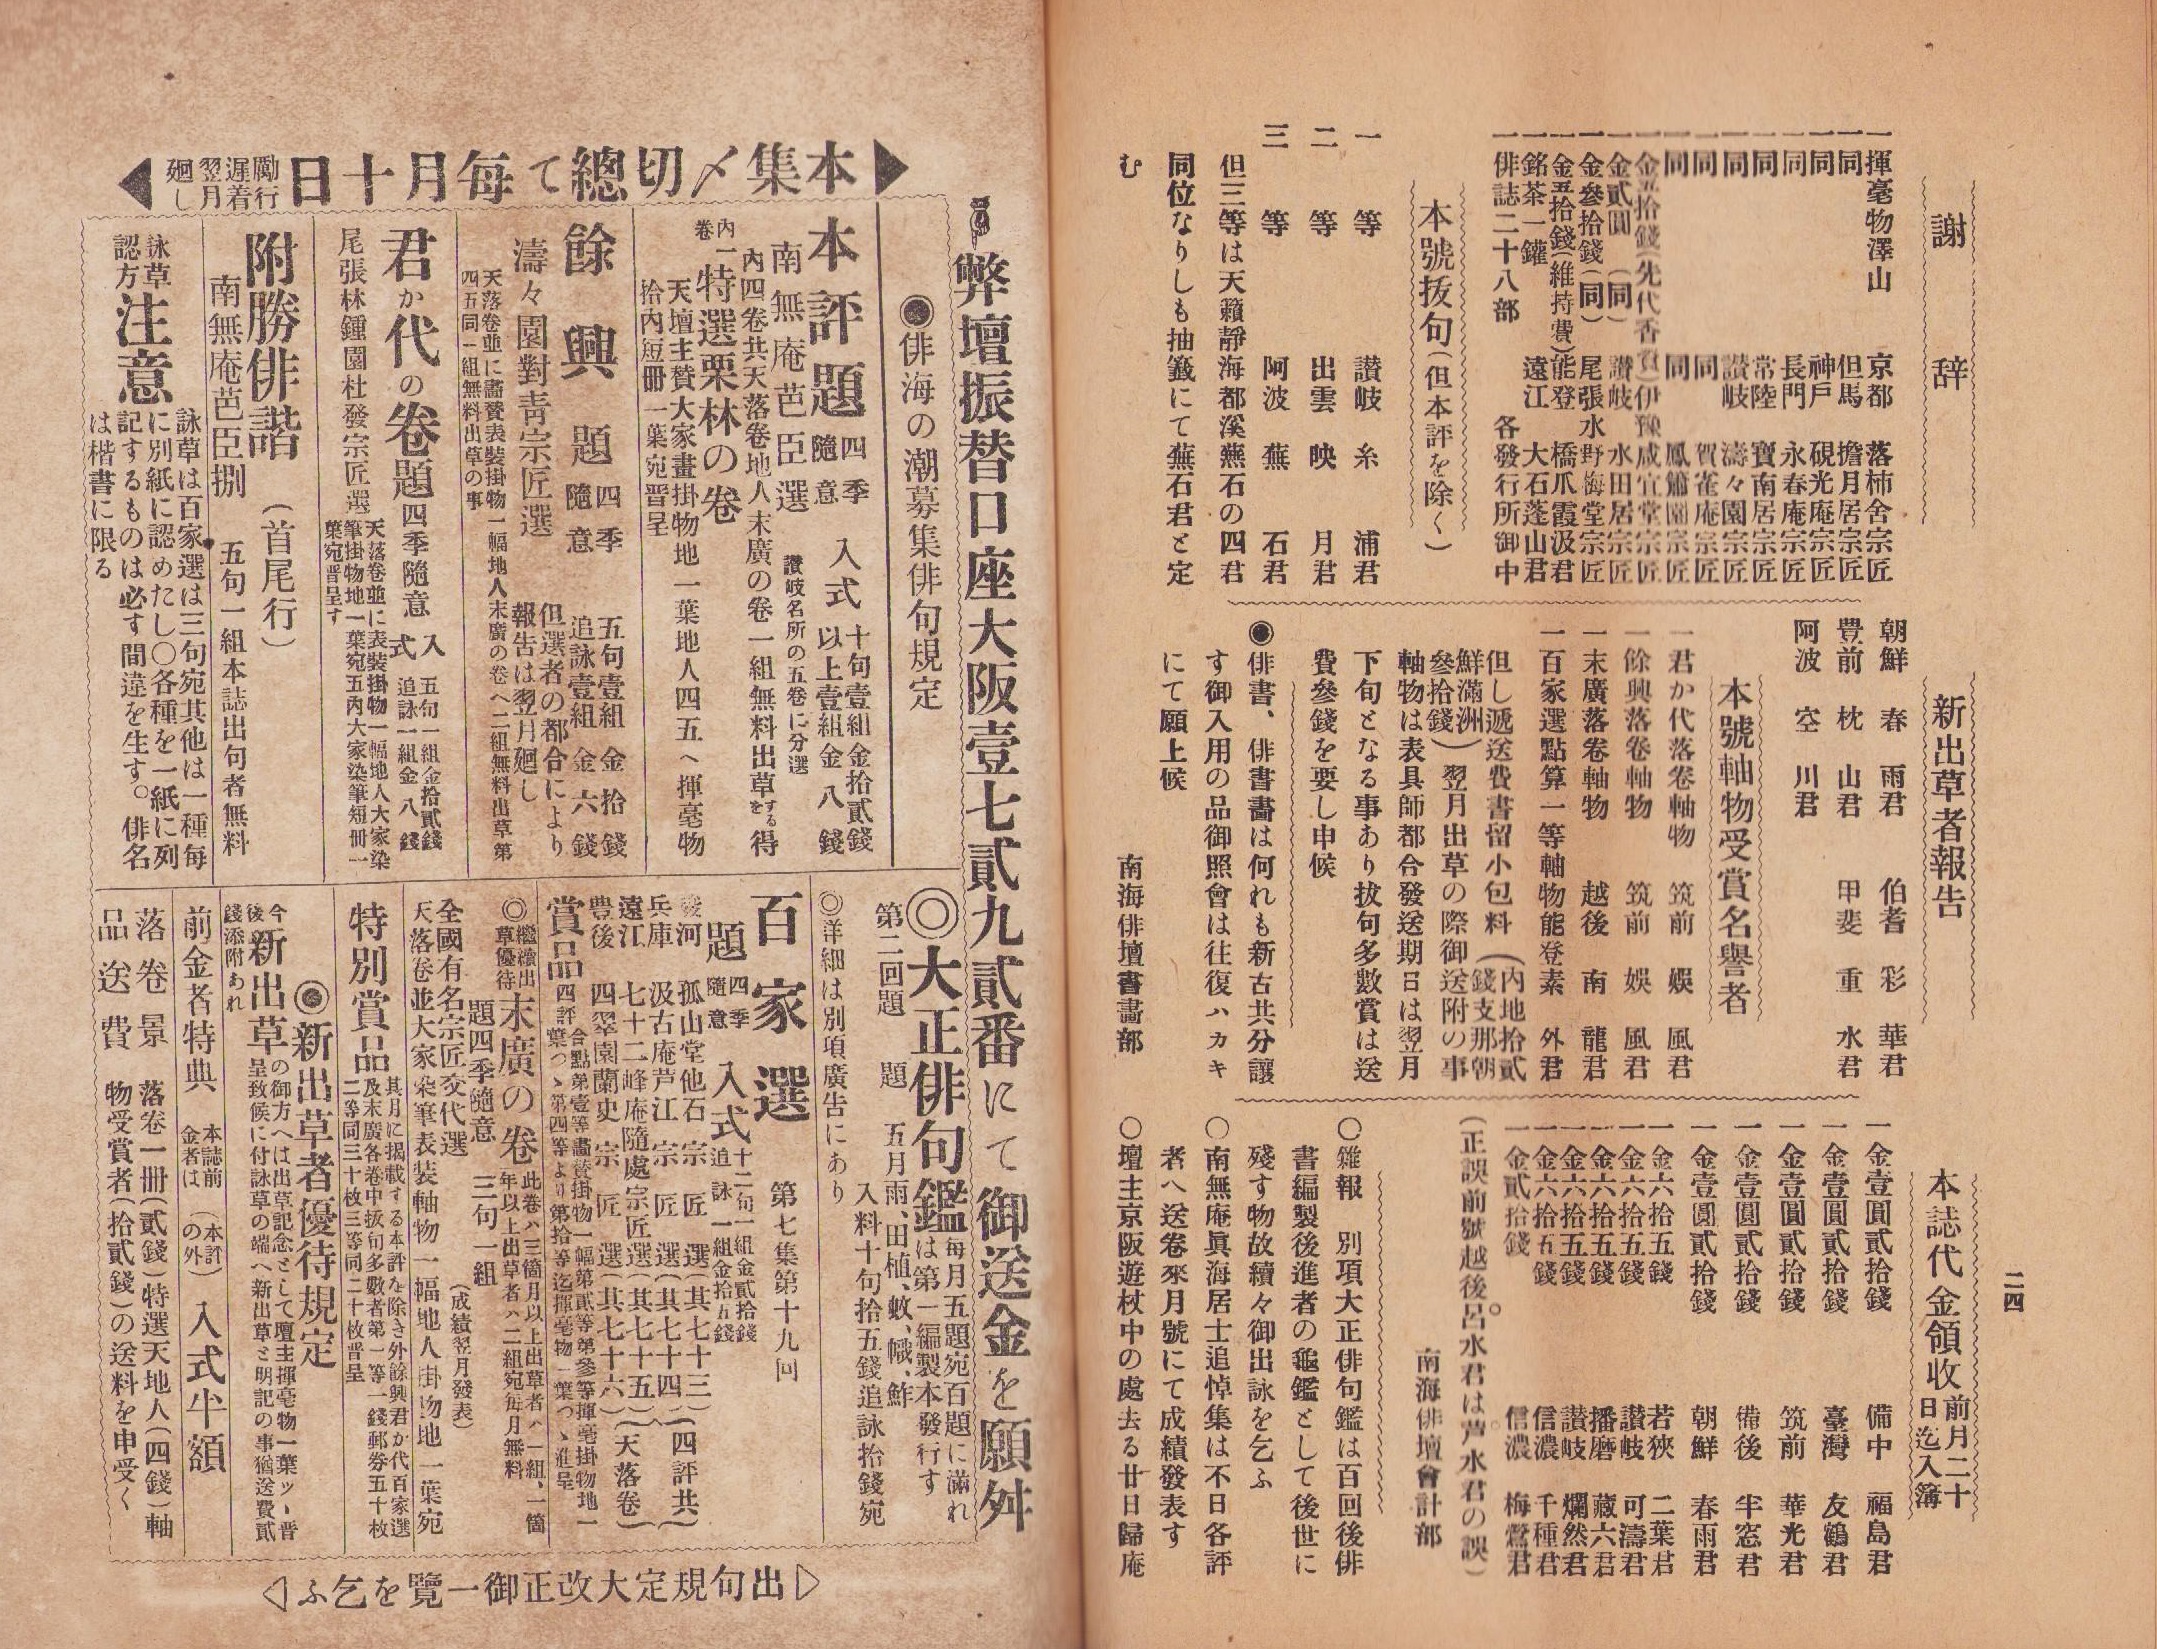 二四
謝辞
一揮毫物澤山 京都 落柿舍宗匠
一同 但馬 擔月居宗匠
一同 神戶 硯光庵宗匠
一同 長門 永春庵宗匠
一同 常陸 寶南居宗匠
一同 讃岐 濤々園宗匠
一同 同 賀雀庵宗匠
一同 同 鳳簫園宗匠
一金五拾錢(先代香資)伊豫 咸宜堂宗匠
一金貳圓(同) 讃岐 水田居宗匠
一金參拾錢(同) 尾張 水野梅堂宗匠
一金五拾錢(維持費)能登 橋爪霞汲君
一銘茶一鑵 遠江 大石蓬山君
一俳誌二十八部 各發行所御中
本號抜句(但本評を除く)
一等 讃岐 糸浦君
二等 出雲 映月君
三等 阿波 蕪石君
但三等は天籟靜海都溪蕪石の四君
同位なりしも抽籤にて蕪石君と定
む
新出草者報告
朝鮮 春雨君 伯耆 彩華君
豊前 枕山君 甲斐 重水君
阿波 空川君
本號軸物受賞名譽者
一君か代落卷軸物 筑前 娯風君
一餘興落卷軸物 筑前 娯風君
一末廣落卷軸物 越後 南龍君
一百家選點算一等軸物能登素外君
但し遞送費書留小包料(内地拾貳錢支那朝鮮滿洲參拾錢)翌月出草の際御送附の事
軸物は表具師都合發送期日は翌月
下旬となる事あり抜句多數賞は送
費參錢を要し申候
◉俳書、俳書畵は何れも新古共分讓
す御入用の品御照會は往復ハカキ
にて願上候
南海俳壇書畵部
本誌代金領收 前月二十日迄入簿
一金壹圓貳拾錢 備中 福島君
一金壹圓貳拾錢 臺灣 友鶴君
一金壹圓貳拾錢 筑前 華光君
一金壹圓貳拾錢 備後 半窓君
一金壹圓貳拾錢 朝鮮 春雨君
一金六拾五錢 若狹 二葉君
一金六拾五錢 讃岐 可濤君
一金六拾五錢 播磨 藏六君
一金六拾五錢 讃岐 爛然君
一金六拾五錢 信濃 千種君
一金貳拾錢 信濃 梅鶯君
(正誤前號越後呂水君は芦水君の誤)
南海俳壇會計部
○雜報 別項大正俳句鑑は百回後俳
書編製後進者の龜鑑として後世に
殘す物故續々御出詠を乞ふ
○南無庵眞海居士追悼集は不日各評
者へ送卷來月號にて成績發表す
○壇主京阪遊杖中の處去る廿日歸庵
本集〆切總て每月十日 勵行遲着翌月廻し
弊壇振替口座大阪壹七貳九貳番にて御送金を願舛
◉俳海の潮募集俳句規定
本評題 四季隨意 入式 十句壹組金拾貳錢 以上壹組金八錢
南無庵芭臣選 讃岐名所の五卷に分選
内四卷共天落卷地人末廣の卷一組無料出草する を得
内一卷特選栗林の卷
天壇主賛大家畫掛物地一葉地人四五へ揮毫物
拾內短冊一葉宛晋呈
餘興題 四季隨意 五句壹組金拾錢 追詠壹組金六錢
濤々園對靑宗匠選 但選者の都合により報告は翌月廻し
天落卷並に畵賛表裝掛物一幅地人末廣の卷へ二組無料出草第
四五同一組無料出草の事
君か代の卷題 四季隨意 入式 五句一組金拾貳錢 追詠一組金八錢
尾張林鍾園杜發宗匠選
天落卷並に表裝掛物一幅地人大家染
筆掛物地一葉宛五內大家染筆短冊一
葉宛晋呈す
附勝俳諧(首尾行)
南無庵芭臣捌 五句一組本誌出句者無料
詠草認方注意
詠草は百家選は三句宛其他は一種每
に別紙に認めたし○各種を一紙に列
記するものは必す間違を生す。俳名
は楷書に限る
◎大正俳句鑑 は每月五題宛百題に滿れは第一編製本發行す
第二回題 題 五月雨、田植、蚊、幟、鮓
入料十句拾五錢追詠拾錢宛
◎詳細は別項廣告にあり
百家選 第七集第十九回
題 四季隨意 入式 十二句一組金貳拾錢 追詠一組金拾五錢
駿河 孤山堂他石宗匠選(其七十三)
兵庫 汲古庵芦江宗匠選(其七十四)(四評共)
遠江 七十二峰庵隨處宗匠選(其七十五)(天落卷)
豊後 四翠園蘭史宗匠選(其七十六)
賞品 四評合點第壹等畵賛掛物一幅第貳等第參等揮毫掛物地一
葉つゝ第四等より第拾等迄揮毫物一葉つゝ進呈
◎繼續出草優待 末廣の卷 此卷ハ三箇月以上出草者ハ一組、一箇年以上出草者ハ二組宛每月無料
題四季隨意 三句一組(成績翌月發表)
全國有名宗匠交代選
天落卷並大家染筆表装軸物一幅地人掛物地一葉宛
特別賞品 其月に揭載する本評を除き外餘興君か代百家選
及末廣各卷中抜句多數者第一等一錢郵券五十枚
二等同三十枚三等同二十枚晋呈
◉新出草者優待規定
今後新出草の御方へは出草記念として壇主揮毫物一葉ツヽ晋
呈致候に付詠草の端へ新出草と明記の事猶送費貳
錢添附あれ
前金者特典 本誌前金者は(本評の外)入式半額
落卷景品送費
落卷一冊(貳錢)特選天地人(四錢)軸
物受賞者(拾貳錢)の送料を申受く
出句規定大改正御一覽を乞ふ